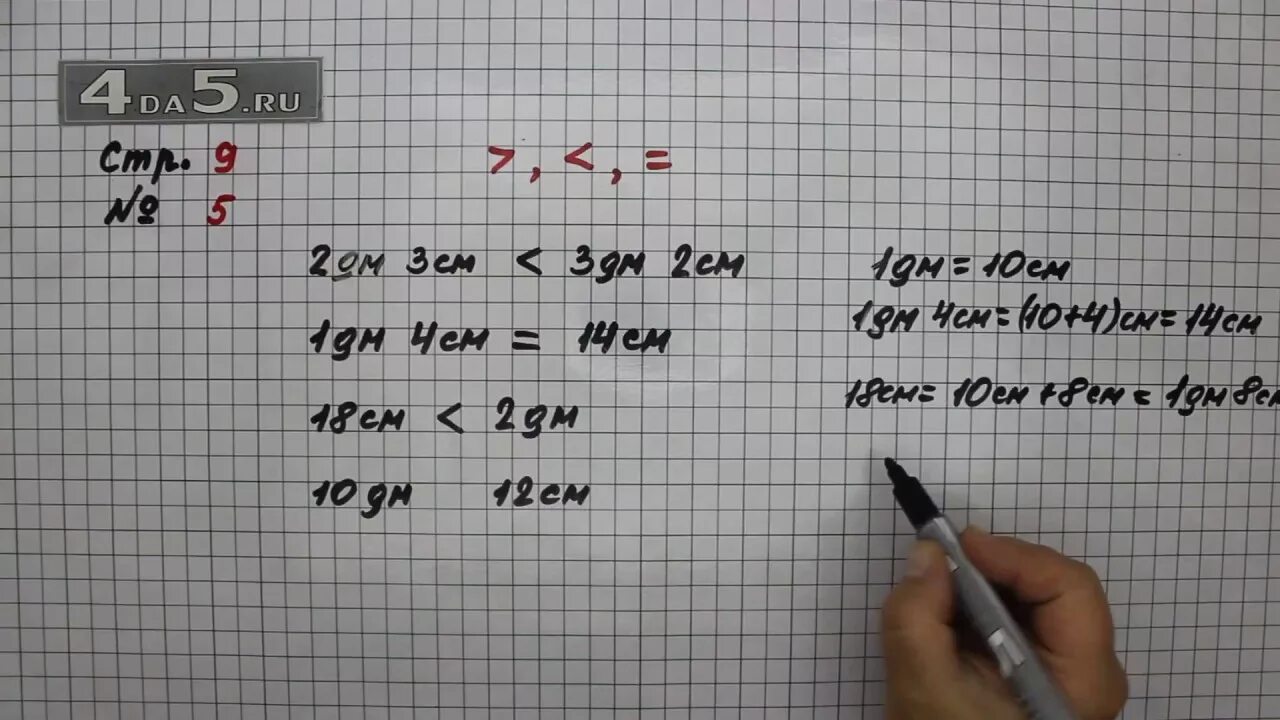 4DA5.RU
Стр. 9
№ 5
>, <, =
2дм 3см < 3дм 2см
1дм 4см = 14см
18см < 2дм
10дм 12см
1дм = 10см
1дм 4см = (10+4)см = 14см
18см = 10см + 8см = 1дм 8см